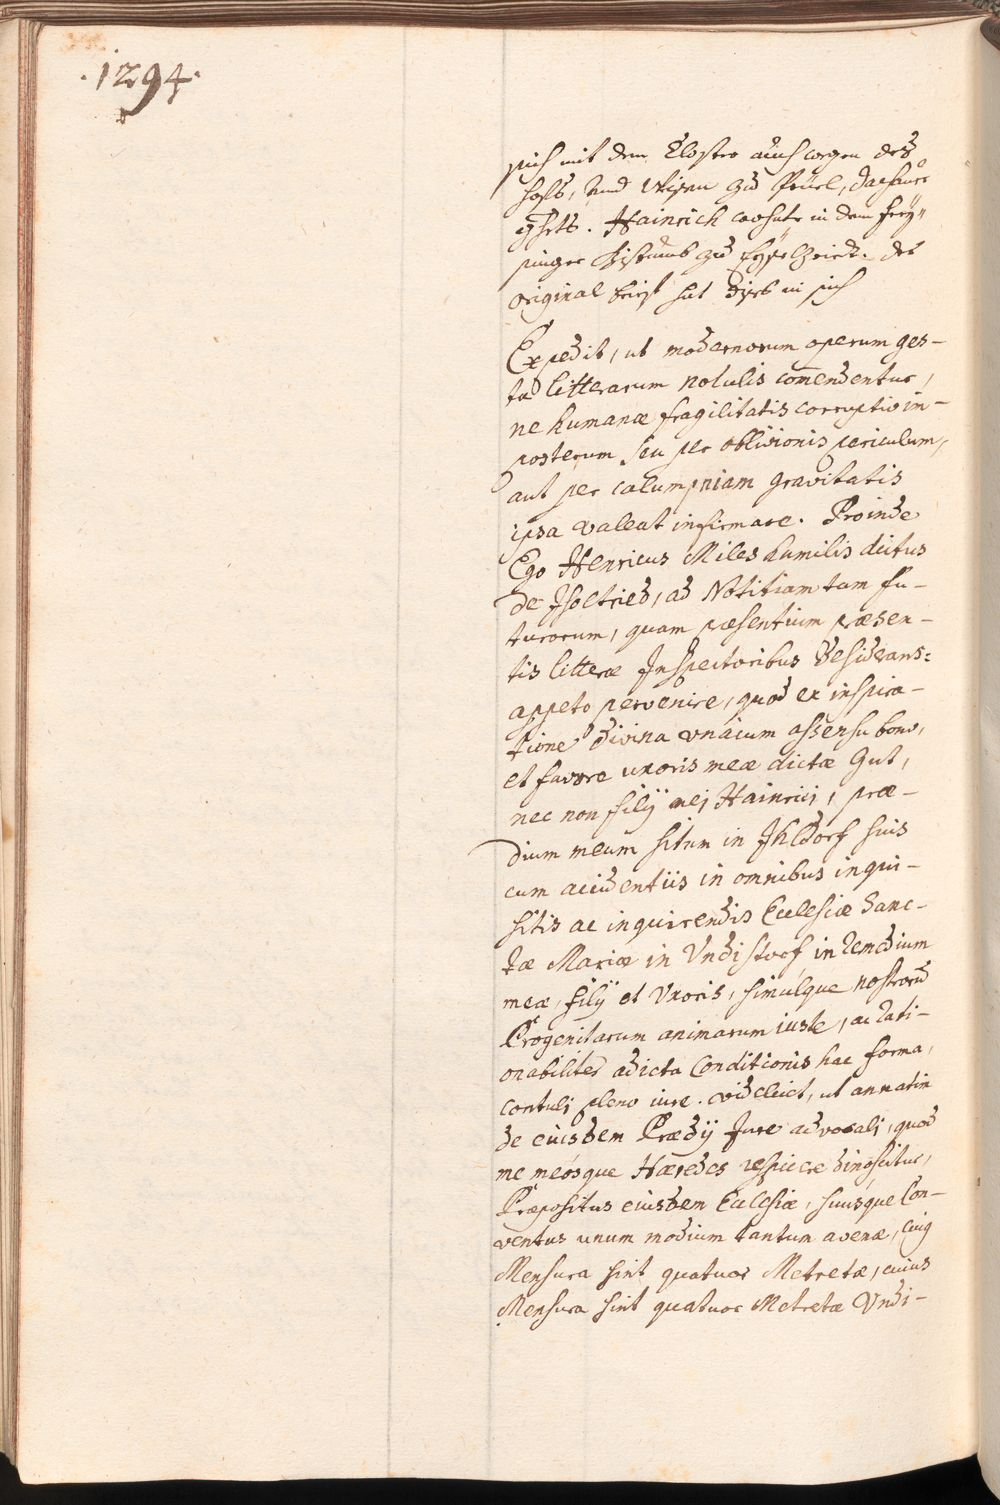 .1294.
sich mit dem Closter auch wegen des
hofs, und Wisen zu Prüel, dachauer
ghrts. Hainrich wohnte in dem Frey„
singer Bistumb zu Eysolzriedt. das
original brief hat dises in sich
Expedit, ut modernorum operum ges-
ta litterarum notulis comendentur,
ne humanæ fragilitatis corruptio im-
posterum seu per oblivionis periculum,
aut per calumpniam gravitatis
ipsa valeat infirmare. Proinde
Ego Henricus Miles humilis dictus
de Isoltried, ad Notitiam tam fu-
turorum, quam præsentium præsen-
tis litteræ Inspectoribus desiderans:
appeto pervenire, quod ex inspira-
tione divina vnacum assensu bono,
et favore uxoris meæ dictæ Gut,
nec non filÿ mei Hainrici, præ-
dium meum situm in Ihldorf suis
cum accidentiis in omnibus inqui-
sitis ac inquirendis Ecclesiæ Sanc-
tæ Mariæ in Vndistorf in remedium
meæ, filÿ et Vxoris, simulque nostrorũ
Progenitarum animarum iuste, ac rati-
onabiliter adicta Conditionis hac forma,
contuli pleno iure. videlicet, ut annatim
de eiusdem Prædÿ Jure advocali, quod
me meosque Hæredes respicere dinoscitur,
Præpositus eiusdem Ecclesiæ, suusque Con-
ventus unum modium tantum avenæ, cuig
Mensura sint quatuor Metretæ, cuius
Mensura sint quatuor Metretæ Vndi-